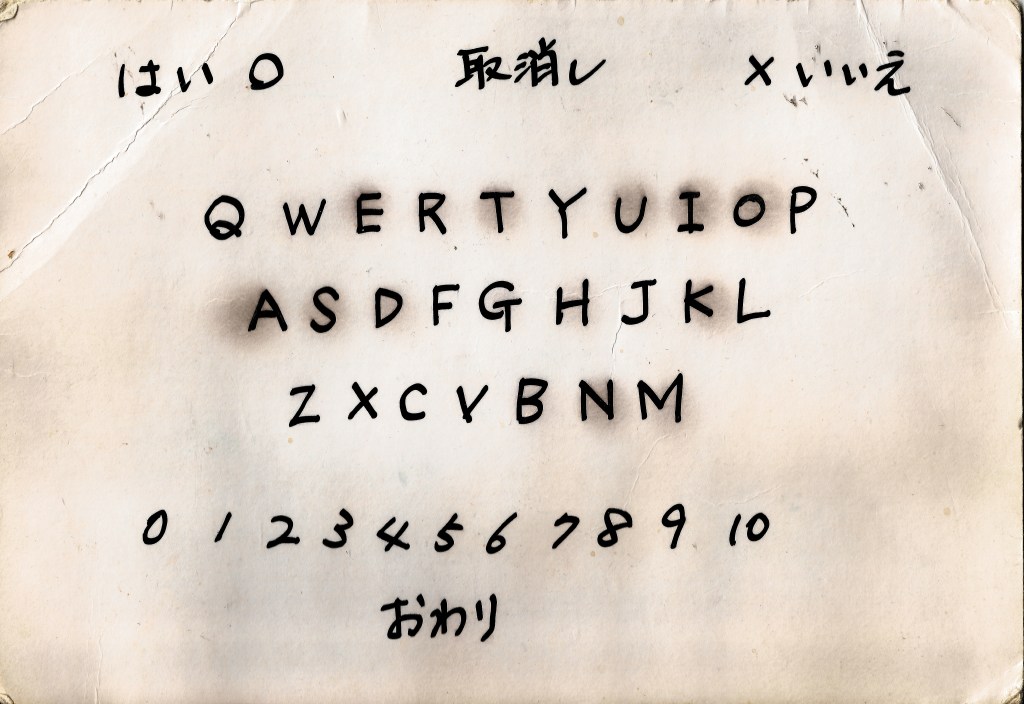 はい ○ 取消し × いいえ
Q W E R T Y U I O P
A S D F G H J K L
Z X C V B N M
0 1 2 3 4 5 6 7 8 9 10
おわり